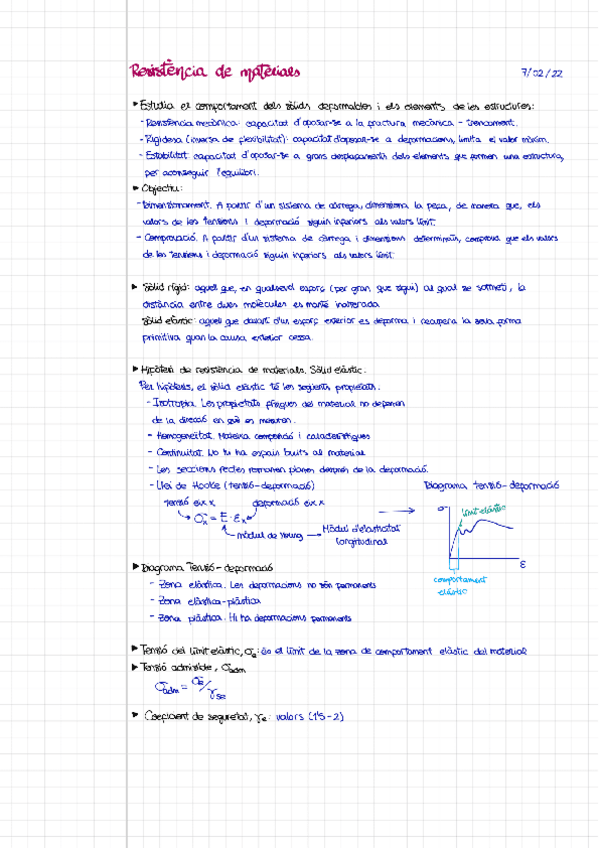 Resistència de materials 7/02/22
► Estudia el comportament dels sòlids deformables i els elements de les estructures:
- Resistència mecànica: capacitat d'oposar-se a la fractura mecànica - trencament.
- Rigidesa (inversa de flexibilitat): capacitat d'oposar-se a deformacions, limita el valor màxim.
- Estabilitat: capacitat d'oposar-se a grans desplaçaments dels elements que formen una estructura,
per aconseguir l'equilibri.
► Objectiu:
- Dimensionament. A partir d'un sistema de càrrega, dimensiona la peça, de manera que, els
valors de les tensions i deformació siguin inferiors als valors límit.
- Comprovació. A partir d'un sistema de càrrega i dimensions determinats, comprova que els valors
de les tensions i deformació siguin inferiors als valors límit.
► Sòlid rígid: aquell que, en qualsevol esforç (per gran que sigui) al qual se sotmeti, la
distància entre dues molècules es manté inalterada
Sòlid elàstic: aquell que davant d'un esforç exterior es deforma i recupera la seva forma
primitiva quan la causa exterior cessa.
► Hipòtesi de resistència de materials. Sòlid elàstic.
Per hipòtesis, el sòlid elàstic té les següents propietats:
- Isotropia. Les propietats físiques del material no depenen
de la direcció en què es mesuren.
- Homogeneïtat. Mateixa composició i característiques
- Continuïtat. No hi ha espais buits al material
- Les seccions rectes romanen planes després de la deformació.
- Llei de Hooke (tensió-deformació) Diagrama tensió-deformació
tensió eix x deformació eix x
σx = E · εx
mòdul de Young → Mòdul d'elasticitat
longitudinal
σ límit elàstic
ε
comportament
elàstic
► Diagrama Tensió-deformació
- Zona elàstica. Les deformacions no són permanents
- Zona elàstica-plàstica
- Zona plàstica. Hi ha deformacions permanents
► Tensió del límit elàstic, σe: és el límit de la zona de comportament elàstic del material
► Tensió admissible, σadm
σadm = σe/γse
► Coeficient de seguretat, γs: valors (1'5-2)